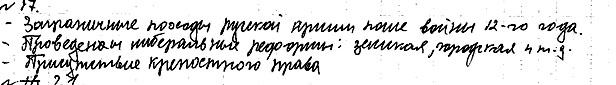 № 17.
- Заграничные походы русской армии после войны 12-го года.
- Проведены либеральных реформ: земская, городская и т.д.
- Присутствие крепостного права